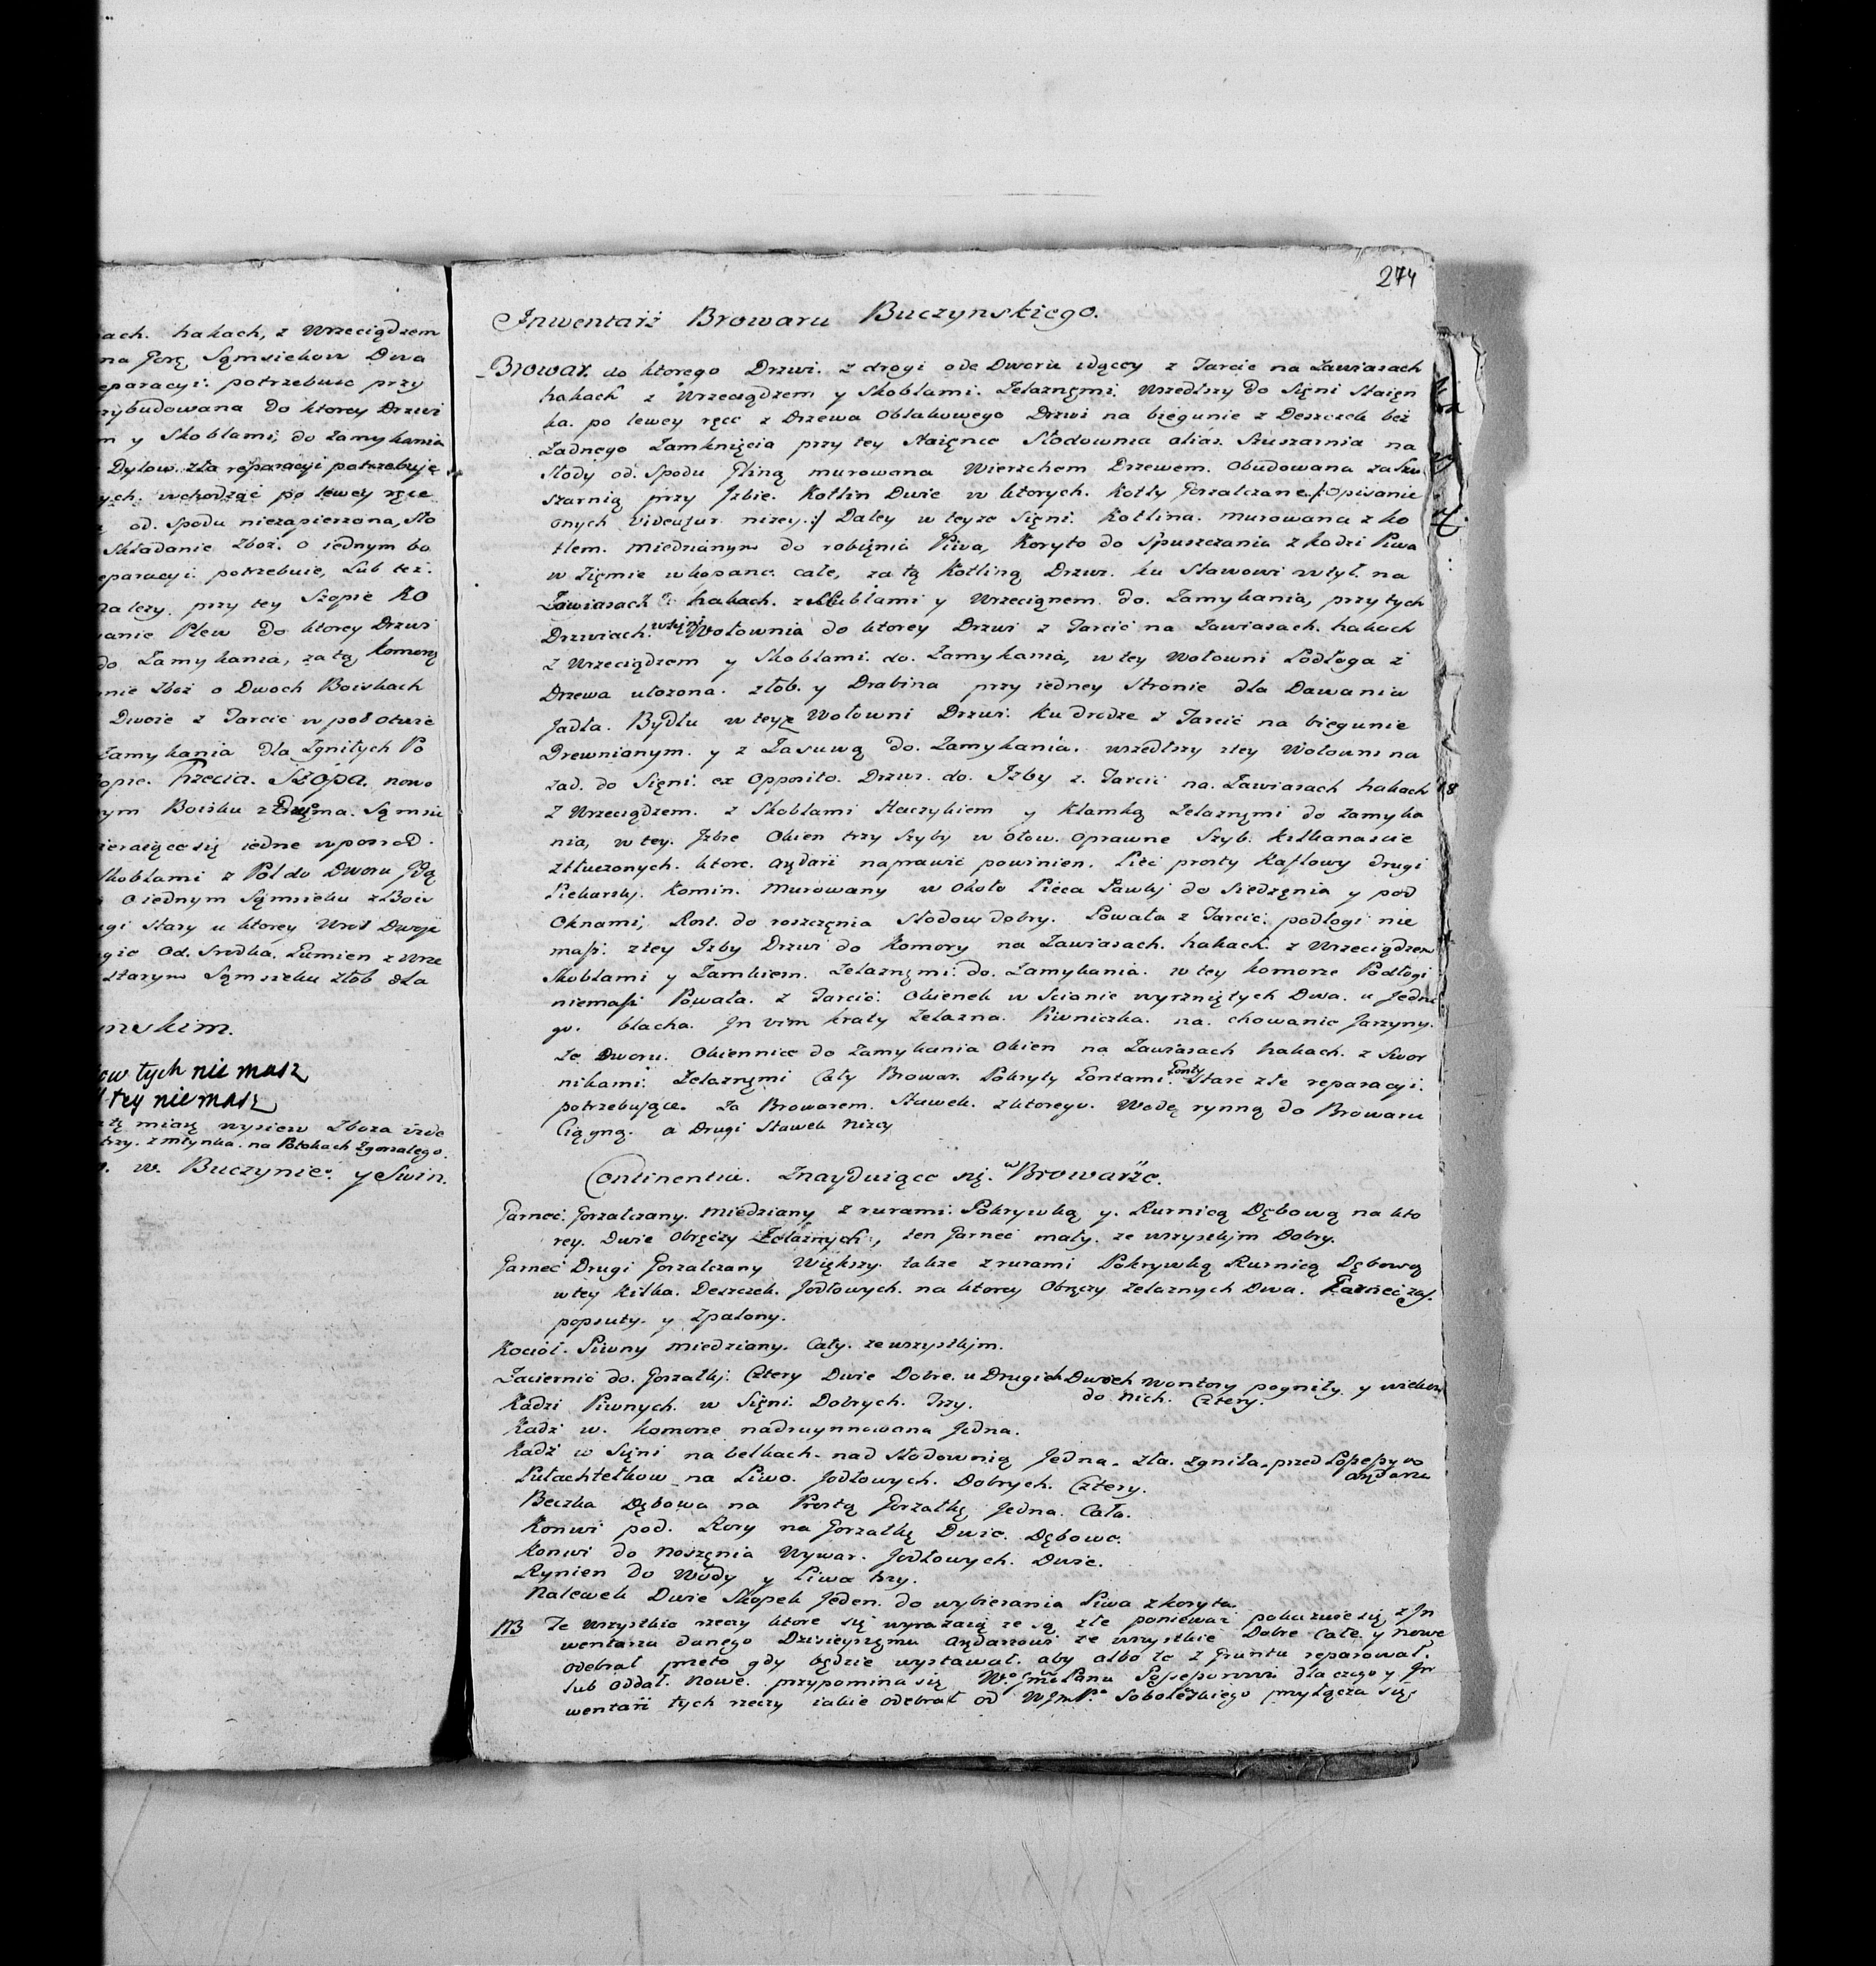 ach. hakach, z Wrzeciądzem
na Gorę Sąmsiekow Dwa
eparacyi: potrzebuie przy
rzybudowana do ktorey Drzwi
m y Skoblami, do zamykania
Dylow. zła reparacyi potrzebuię
ych. wchodząc po lewey ręce
od. Spodu niezapierzona, Sło
Składanie zboz. o iednym bo
eparacyi: potrzebuie, Lub też.
nalezy. przy tey Szopie Ko
anie Plew do ktorey Drzwi
do Zamykania, za tą komorą
nie Zboż o Dwoch Boiskach
Dwoie z Tarcic w poł otwie
Zamykania dla Zgniłych Po
opie. Trzecia. Szopa. nowo
ym Boisku z Dwiema. Sąmsie
ieraiące się iedne wposrod.
Skoblami z Pol do Dworu Idą
o iednym Sąmsieku z Bois
gi Stary u ktorey Wrot Dwoie
gie Od. Srodka. Lumien z Wrze
starym Sąmsieku złob dla
nskim.
ow tych nie masz
tey nie masz
tę miarę wysiew Zboza
trzy. z młynka. na Potokach Zgorzałego.
w. Buczynie. y Swin.
274
Inwentarż Browaru Buczynskiego.
Browar. do ktorego Drzwi. z drogi ode Dworu idącey z Tarcic na Zawiasach
hakach z Wrzeciądzem y Skoblami. Zelaznęmi. Wszedłszy do Sięni Staięn
ka. po lewey ręce z Drzewa Obłakowego Drzwi na biegunie z Deszczek beż
Zadnego Zamknięcia przy tey Staięnce Słodownia alias. Szuszarnia na
Słody od. Spodu Gliną murowana Wierzchem Drzewem. Obudowana za Szu
szarnią przy Izbie. Kotlin Dwie w ktorych. Kotły Gorzałczane /: Opisanie
onych videatur. nizey. :/ Daley w teyze Sięni. Kotlina. murowana z ko
tłem. miedzianym do robięnia Piwa, Koryto do Spuszczania z kadzi Piwa
w Ziemie wkopane. całe, za tą Kotliną Drzwi. ku Stawowi w tył. na
Zawiasach hakach. z Skublami y Wrzeciąnem. do. Zamykania, przy tych
Drzwiach. w sieni Wołownia do ktorey Drzwi z Tarcic na Zawiasach. hakach
Z Wrzeciądzem y Skoblami. do. Zamykania, w tey Wołowni Podłoga z
Drzewa ułozona. złob. y Drabina przy iedney stronie dla Dawania
Jadła. Bydłu w teyze Wołowni Drzwi. ku drodze z Tarcic na biegunie
Drewnianym. y z Zasuwą do. Zamykania. wszedłszy ztey Wołowni na
zad. do Sięni. ex Opposito. Drzwi. do. Izby z. Tarcic na. Zawiasach hakach
Z Wrzeciądzem. z Skoblami Haczykiem y Klamką Zelaznęmi do zamyka
nia, w tey. Izbie Okien trzy Szyby w ołow. oprawne Szyb. kilkanascie
ztłuczonych. ktore. Arędarż naprawić powinien. Piec prosty Kaflowy drugi
Piekarskj. Komin. murowany w około Pieca Ławkj do Siedzęnia y pod
Oknami, Rost. do roszczęnia Słodow dobry. Powała z Tarcic. podłogi nie
masz. z tey Izby Drzwi do Komory na Zawiasach. hakach. z Wrzeciądzem
Skoblami y Zamkiem. Zelaznęmi. do. Zamykania. w tey komorze Podłogi
niemasz Powała. z Tarcic. Okienek w Scianie wyrzniętych Dwa. u Jedne
go. blacha. In vim kraty Zelazna. Piwniczka. na. chowanie Jarzyny.
Ze Dworu. Okiennice do Zamykania Okien na Zawiasach hakach. z Swor
nikami. Zelaznęmi Cały Browar. Pokryty Gontami. Gonty Stare złe reparacyi.
potrzebuiące. Za Browarem. Stawek. z ktorego. Wodę rynną do Browaru
Ciągną. a Drugi Stawek Nizey
Continentia. Znayduiące się. w Browarże.
Garnec. Gorzałczany. miedziany z rurami. Pokrywką y. Rurnicą Dębową na kto
rey. Dwie Obręczy Zelaznych, ten Garnec mały. ze wszystkjm Dobry.
Garnec Drugi Gorzałczany Większy. takze z rurami Pokrywką Rurnicą Dębową
w tey kilka. Deszczek. Jodłowych. na ktorey Obręczy zelaznych Dwa. Garnec zaś.
popsuty. y Zpalony.
Kocioł. Piwny miedziany. Cały. ze wszystkjm.
Zaciernic do. Gorzałkj. Cztery Dwie Dobre. u Drugich Dwoch wontory pogniły. y wiekow
do nich. Cztery.
Kadzi Piwnych. w Sięni. Dobrych. Trzy.
Kadz w. komorze nadruynnowana Jedna.
Kadź w Sięni na belkach. nad Słodownią Jedna. zła. zgniła. przed Possessyą
Arędarza
Pułachtelkow na Piwo. Jodłowych. Dobrych. Cztery.
Beczka Dębowa na Prostą Gorzałkę Jedna. Cała.
Konwi pod. Rury na Gorzałkę Dwie. Dębowe.
Konwi do Noszęnia Wywar. Jodłowych. Dwie.
Rynien do Wody y Piwa trzy.
Nalewek Dwie Skopek Jeden. do wybierania Piwa z koryta.
NB Te Wszystkie rzeczy ktore się wyrazaią ze są złe poniewaz pokazuie się z In
wentarza danego Dzisieyszęmu Arędarzowi ze wszystkie Dobre Całe y nowe
odebrał przeto gdy będzie wystawał. aby albo te z Gruntu reparował.
lub oddał. nowe. przypomina się Wo. Jmć Panu Possessorowi dla czego y In
wentarż tych rzeczy iakie odebrał od WJmPa. Sobolewskiego przyłącza się